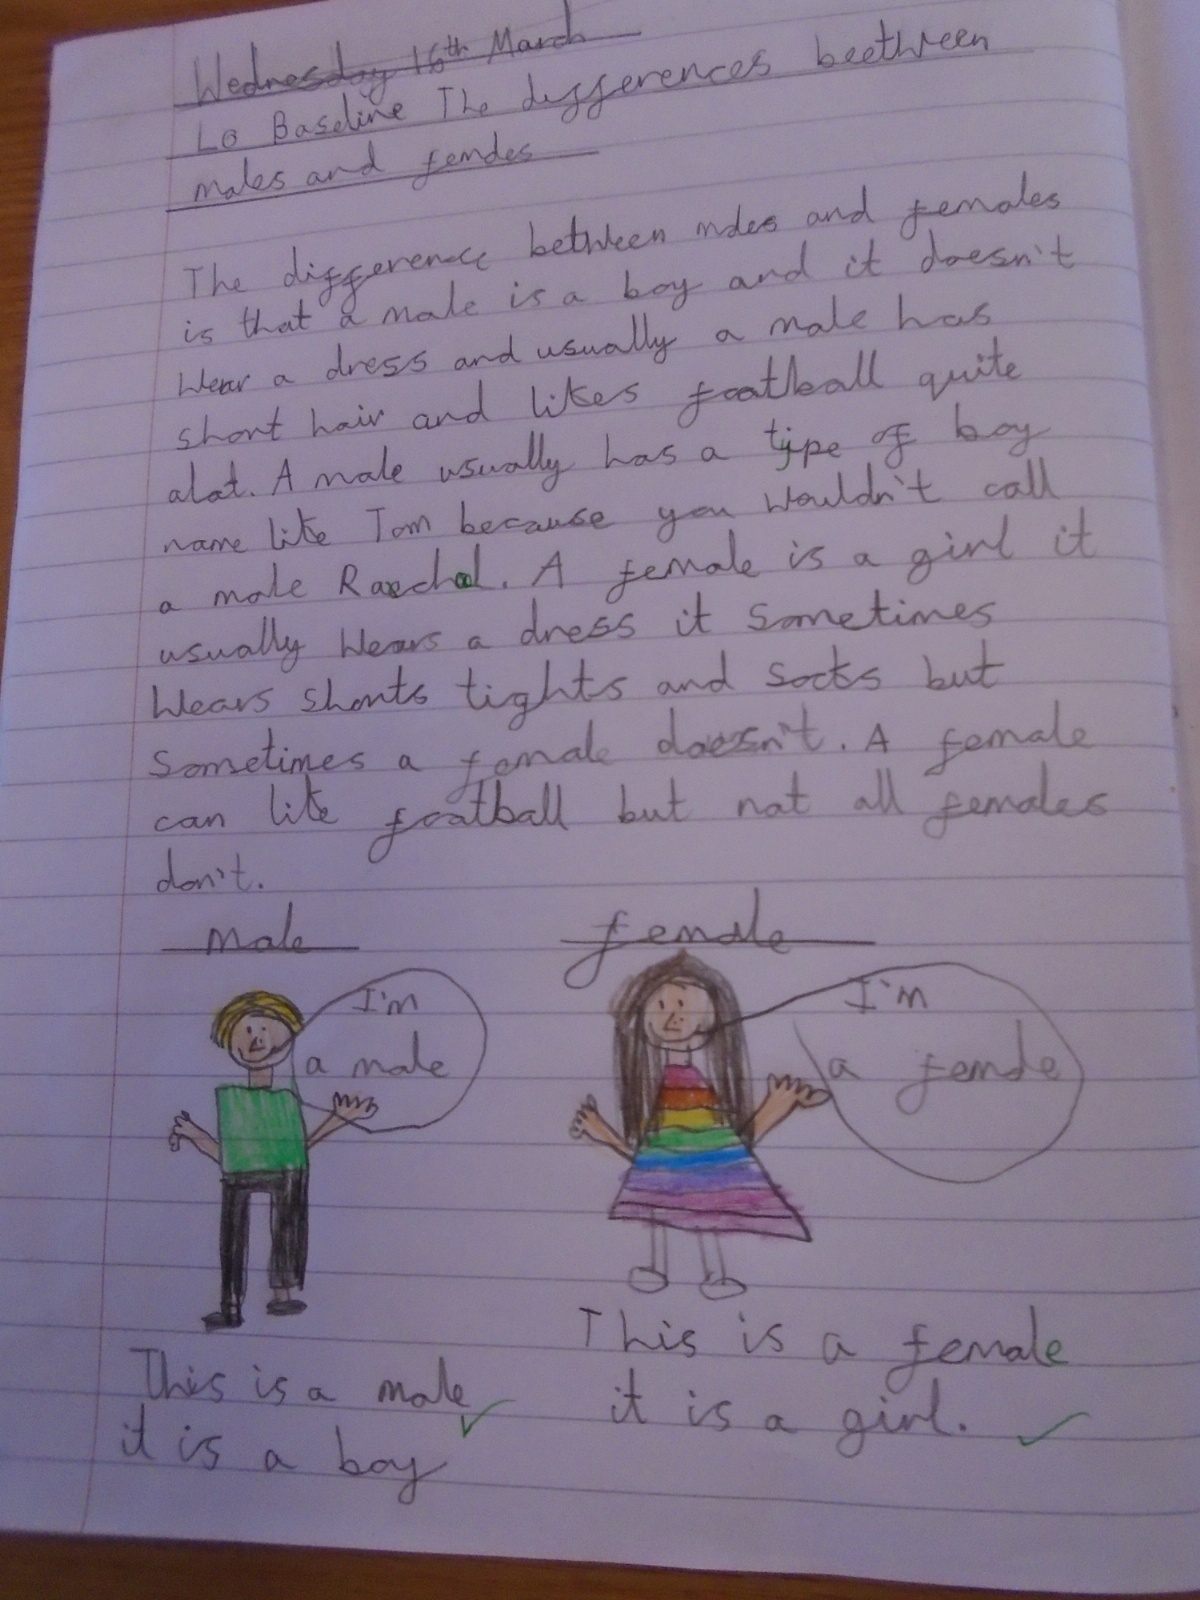 Wednesday 16th March
Lo Baseline The differences beethween
males and femdes
The difference bethween mdes and females
is that a male is a boy and it doesn't
wear a dress and usually a male has
short hair and likes football quite
alot. A male usually has a type of boy
name like Tom because you wouldn't call
a male Raechel. A female is a girl it
usually wears a dress it sometimes
wears shorts tights and socks but
sometimes a female doesn't. A female
can like football but not all females
don't.
male
female
I'm
a male
I'm
a femde
This is a male
it is a boy
This is a female
it is a girl.